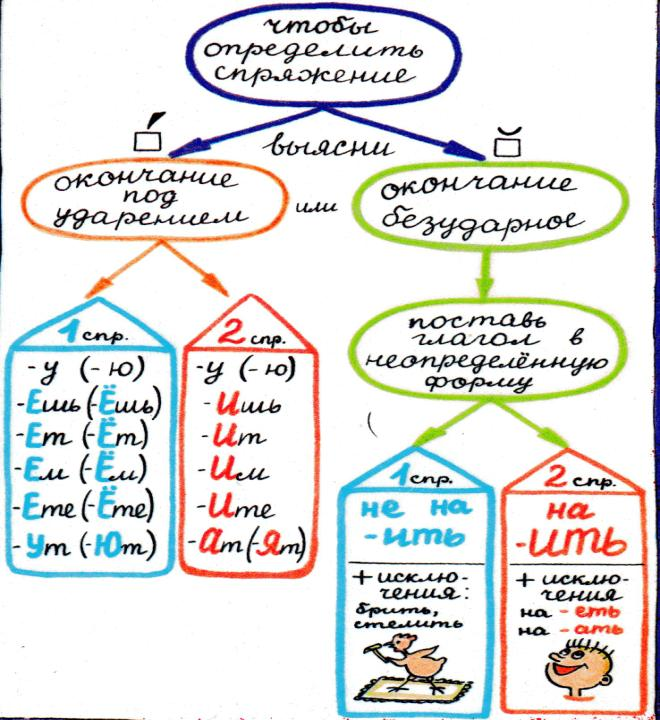 чтобы
определить
спряжение
выясни
окончание
под
ударением
или
окончание
безударное
1 спр.
-у (-ю)
-Ешь (-Ёшь)
-Ет (-Ёт)
-Ем (-Ём)
-Ете (-Ёте)
-Ут (-Ют)
2 спр.
-у (-ю)
-Ишь
-Ит
-Им
-Ите
-Ат (-Ят)
поставь
глагол в
неопределённую
форму
1 спр.
не на
-ить
+ исклю-
чения:
брить,
стелить
2 спр.
на
-ИТЬ
+ исклю-
чения
на -еть
на -ать